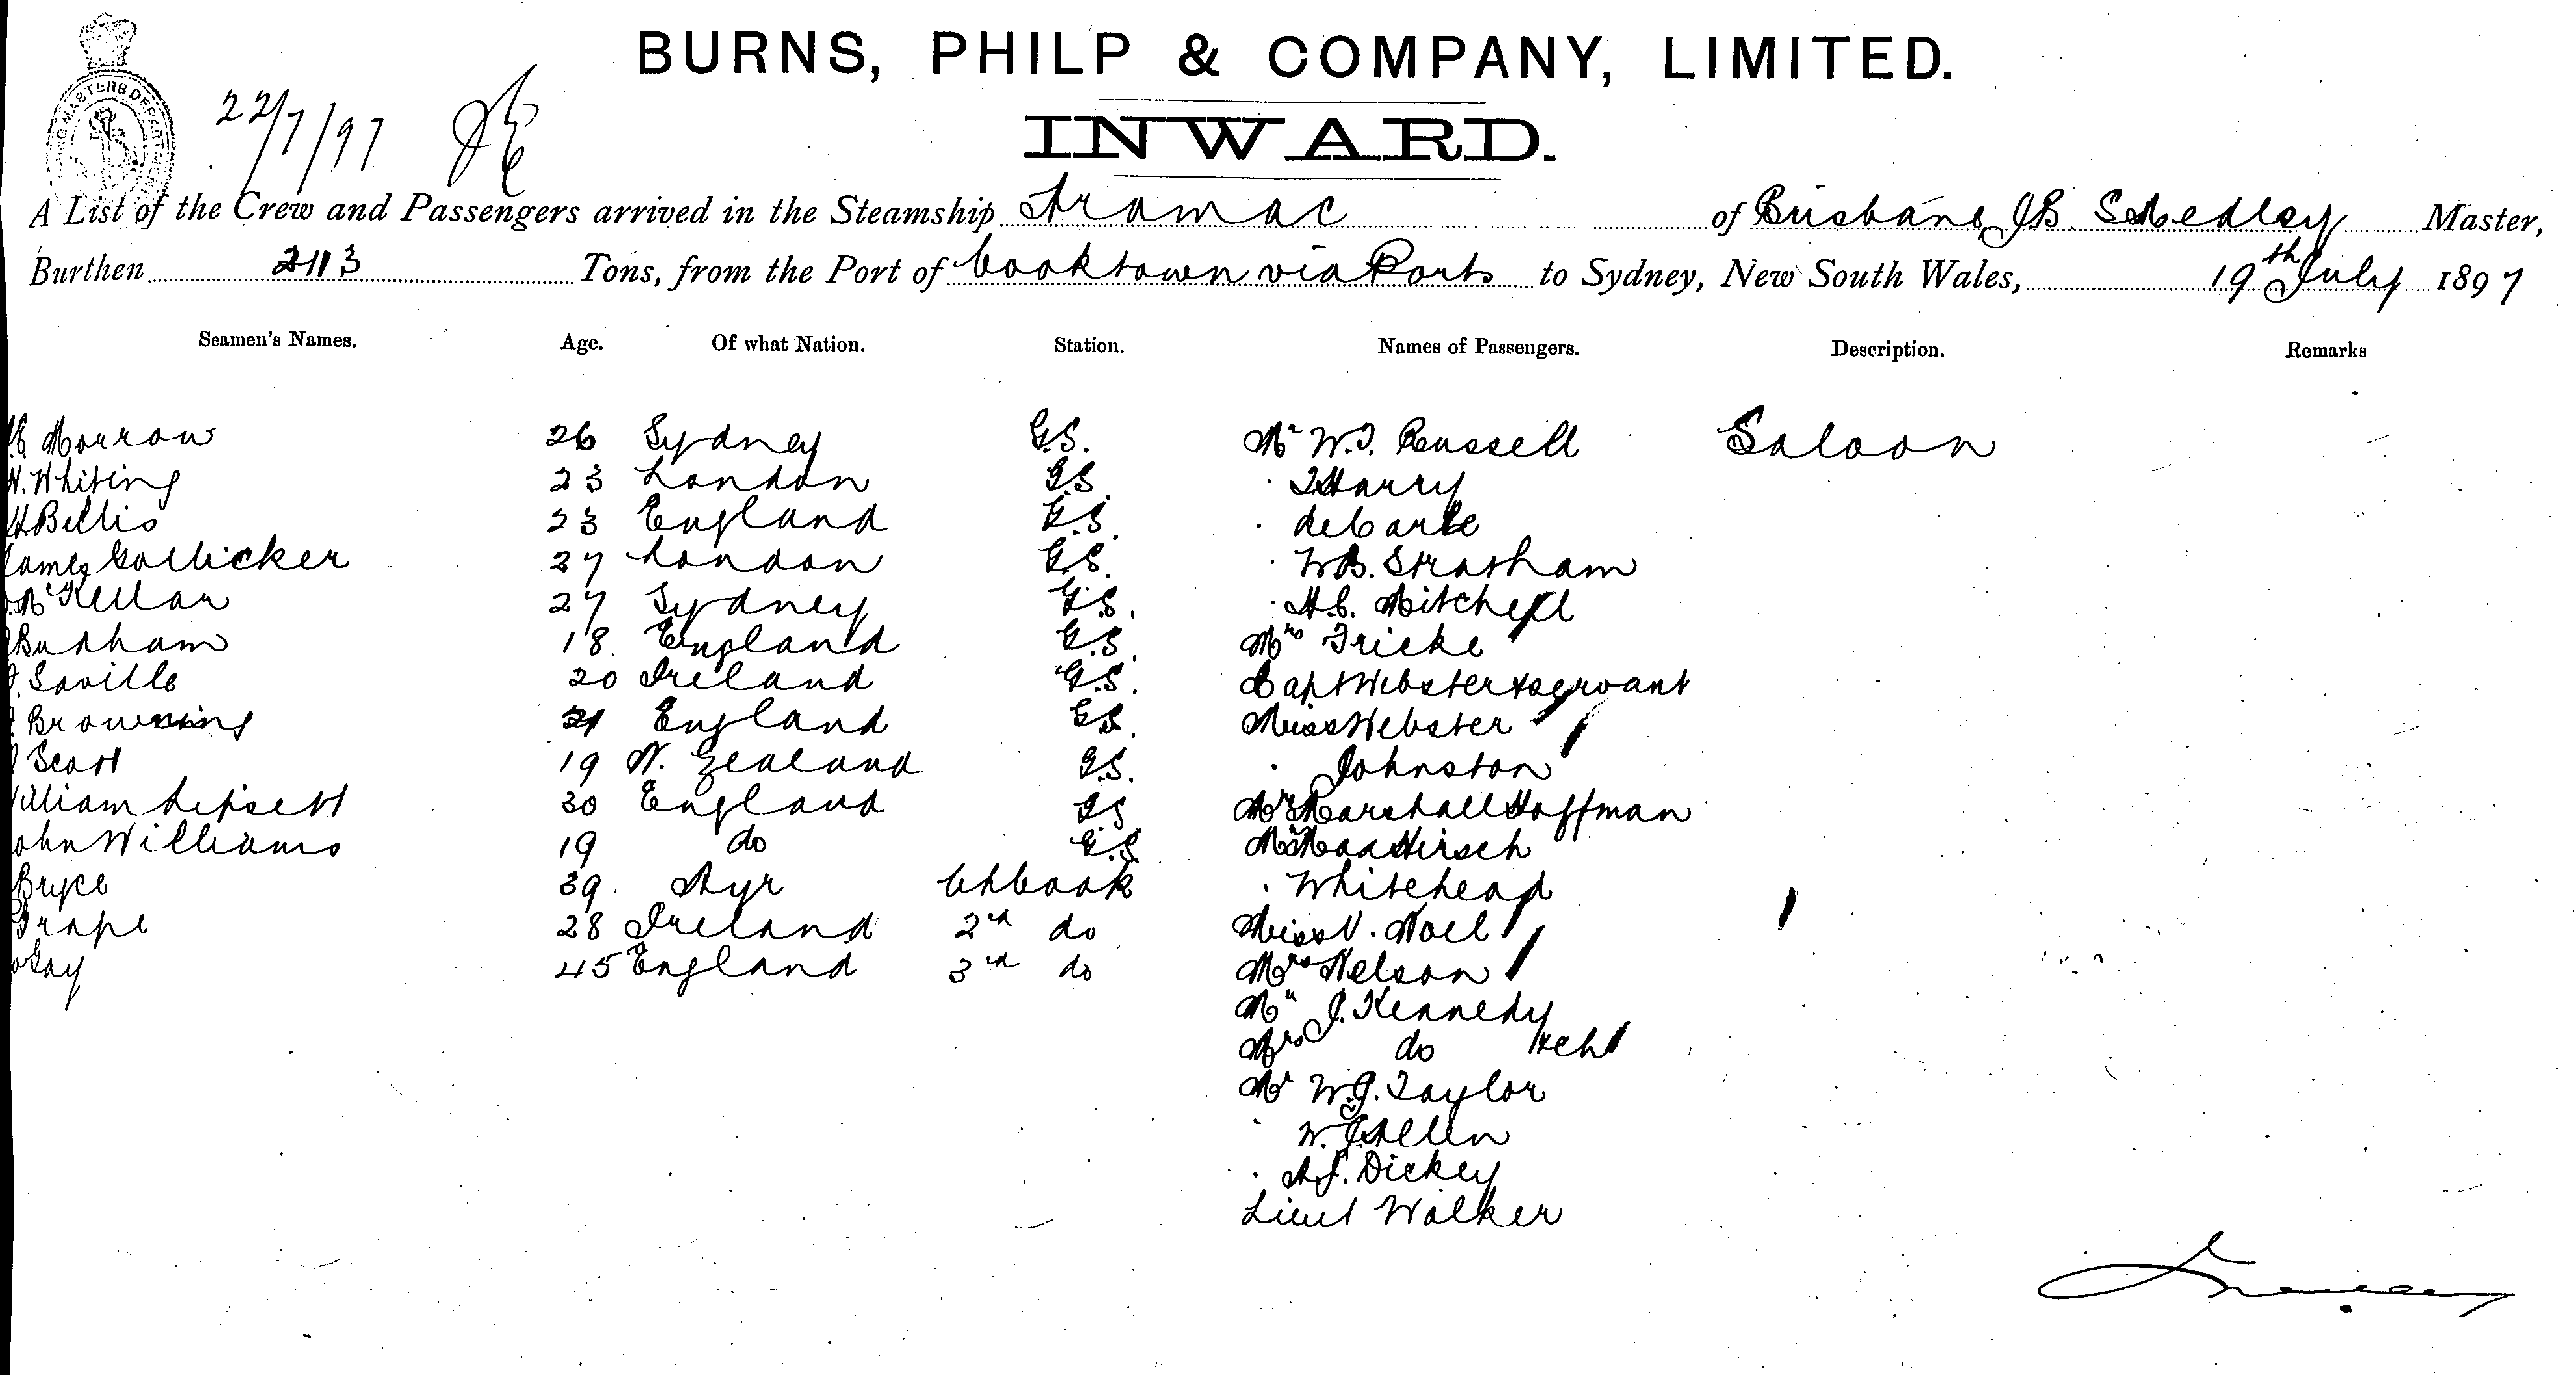 BURNS, PHILP & COMPANY, LIMITED.
22/7/97
INWARD.
A List of the Crew and Passengers arrived in the Steamship Aramac of Brisbane, J B. Smedley Master,
Burthen 2113 Tons, from the Port of Cooktown via Ports to Sydney, New South Wales, 19th July 1897
Seamen's Names. Age. Of what Nation. Station. Names of Passengers. Description. Remarks
Morrow 26 Sydney G.S. Mr W.J. Russell Saloon
H. Whiting 23 London G.S. · Harry
H Bettis 23 England G.S. · de
James 27 London G.S. · W B. Stratham
McKellar 27 Sydney G.S. · H.C. Mitchell
Budham 18 England G.S. Mrs Fricke
Saville 20 Ireland G.S. Capt Webster & servant
Browning 21 England G.S. Miss Webster
Scott 19 N. Zealand G.S. · Johnston
William Lipsett 30 England G.S Mr Marshall Hoffman
John Williams 19 do G.S Mr Max Hirsch
Bryce 39. Ayr Ch Cook · Whitehead
Grape 28 Ireland 2nd do Miss V. Noel
Gay 45 England 3rd do Mrs Nelson
Mr J. Kennedy
Mrs do & ch
Mr W.J. Taylor
W. J. Allen
· A J. Dickey
Lieut Walker